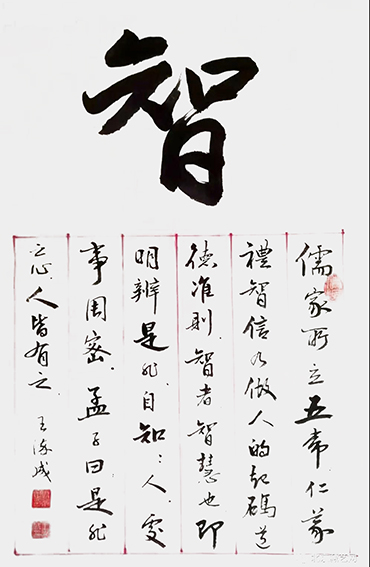 智
儒家所立五常仁義
禮智信乃做人的起碼道
德准則智者智慧也即
明辨是非自知:人處
事周密孟子曰:是非
之心人皆有之